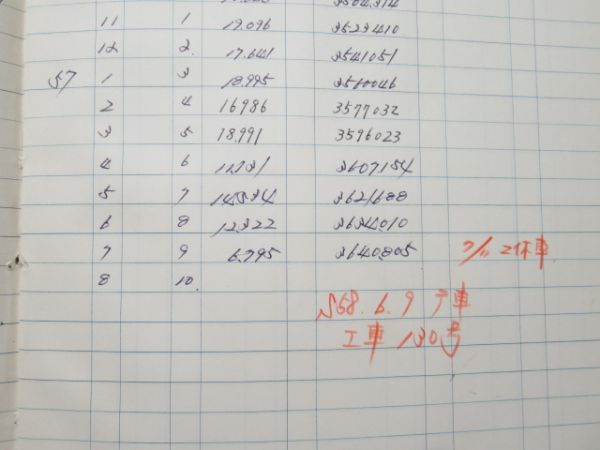 11 1 19.096 3523410
12 2. 17.641 3541051
57 1 3 18.995 3560046
2 4 16986 3577032
3 5 18.991 3596023
4 6 11.131 3607.154
5 7 14.534 3621688
6 8 12.322 3634010
7 9 6.795 3640.805 7/11 休車
8 10.
S58.6.9 車
工車 130号